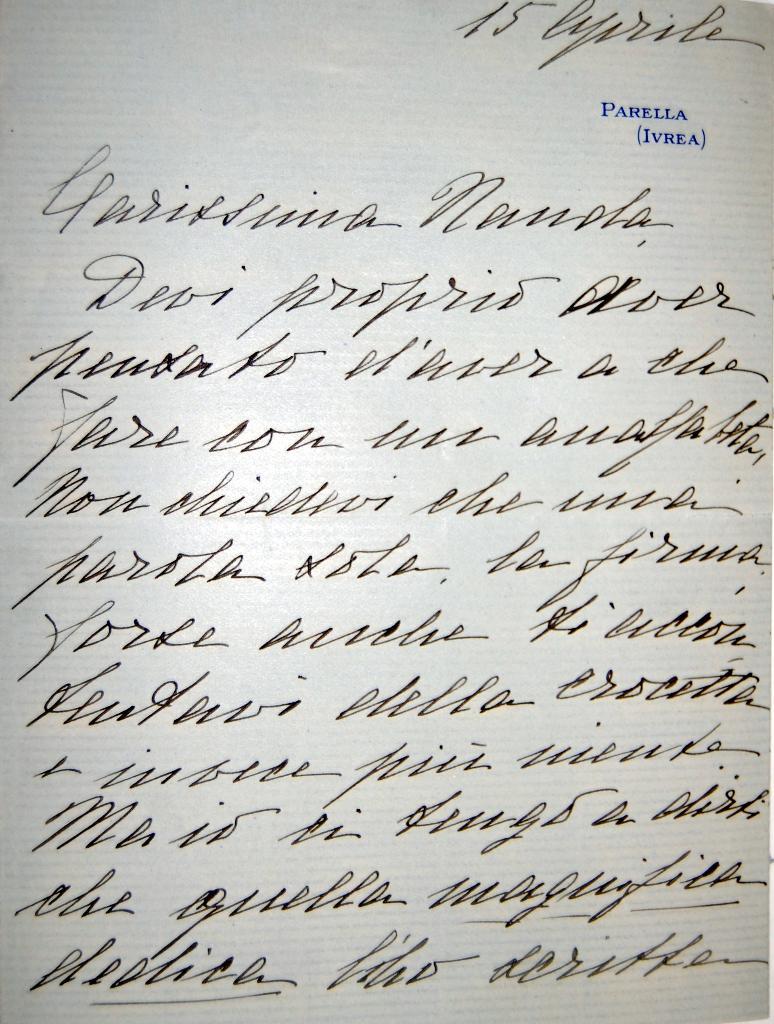 15 Aprile
PARELLA
(IVREA)
Carissima Nanda,
Devi proprio aver
pensato d'aver a che
fare con un analfabeta,
Non chiedevi che una
parola sola, la firma,
forse anche ti accon
tentavi della crocetta
e invece più niente.
Ma io ci tengo a dirti
che quella magnifica
dedica l'ho scritta